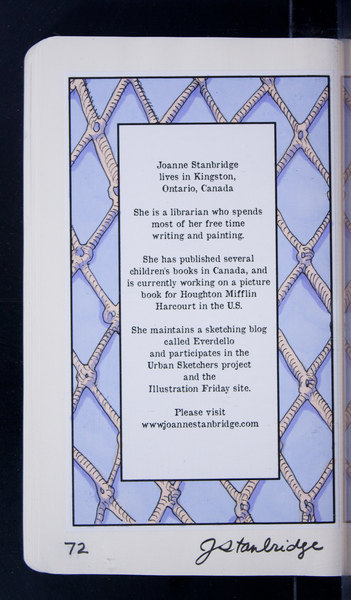 Joanne Stanbridge
lives in Kingston,
Ontario, Canada
She is a librarian who spends
most of her free time
writing and painting.
She has published several
children's books in Canada, and
is currently working on a picture
book for Houghton Mifflin
Harcourt in the U.S.
She maintains a sketching blog
called Everdello
and participates in the
Urban Sketchers project
and the
Illustration Friday site.
Please visit
www.joannestanbridge.com
72 JStanbridge